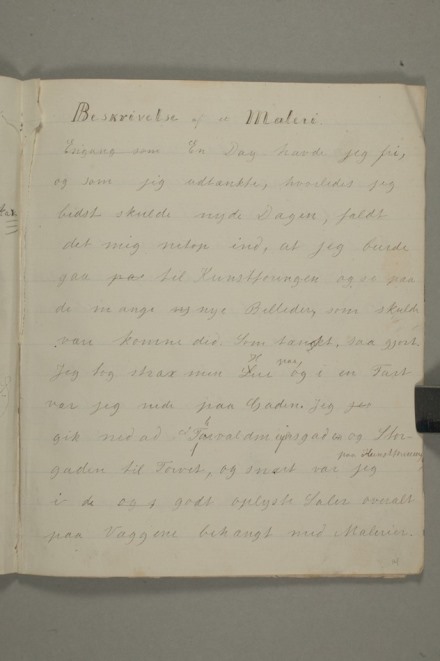 Beskrivelse af et Maleri.
Engang som En Dag havde jeg fri,
og som jeg udtænkte, hvorledes jeg
bedst skulde nyde Dagen, faldt
det mig netop ind, at jeg burde
gaa paa til Kunstforeningen og se paa
de mange ny nye Billeder, som skulde
være komne did. Som tænkt, saa gjort.
Jeg tog strax min og var i en Fart
var jeg nede paa Gaden. Jeg
gik ned ad Torvaldmeyersgade og Stor-
gaden til Torvet, og snart var jeg paa Kunstforening
i de godt oplyste Saler overalt
paa Væggene behængt med Malerier.